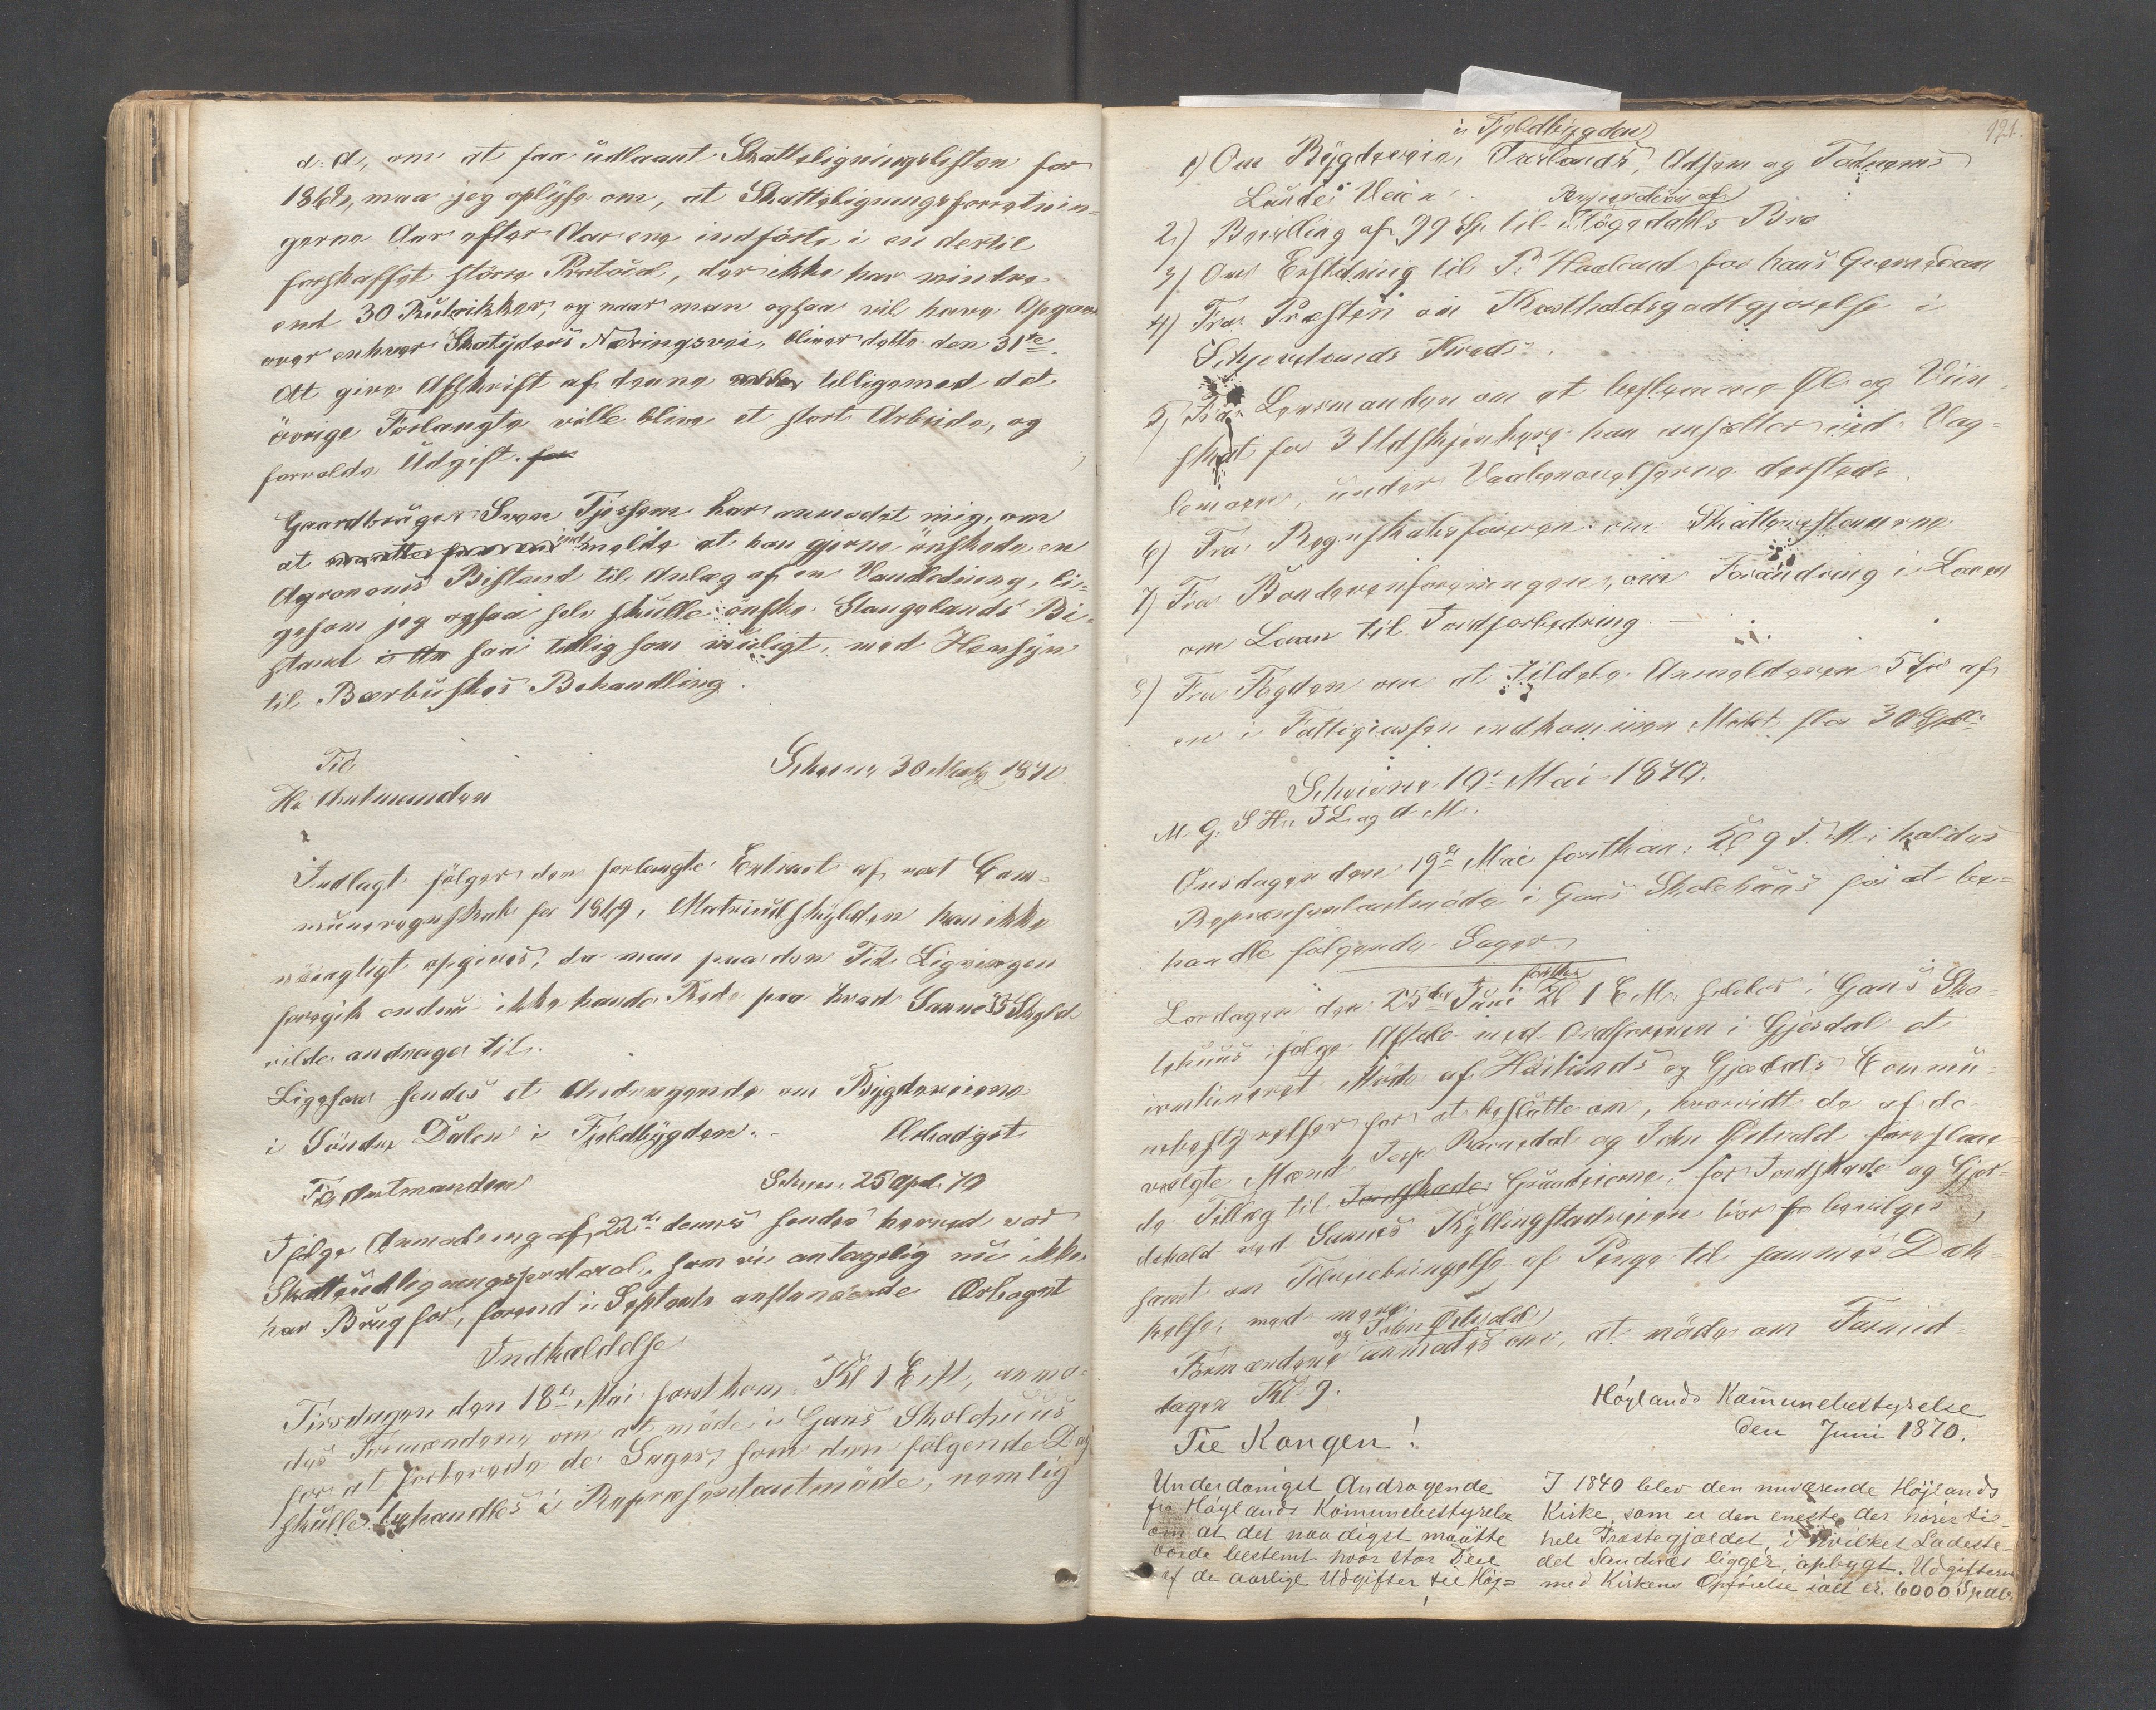 d. A, om at faa udlaant Skatteligningslisten for
1868, maa jeg oplyse om, at Skatteligningsforretnin-
gerne Aar efter Aar ere indförte i en dertil
forskaffet större Protocol, der ikke har mindre
end 30 Rubrikker, og naar man ogsaa vil have Opgave
over enhver Skatyders Næringsvei, bliver dette den 31te.
Att give Afskrift af denne tilligemed det
övrige Forlangte ville blive et stort Arbeide, og
forvolde Udgift. for
Gaardbruger Sven Tjessem har anmodet mig, om
at indmelde at han gjerne önskede en
Agronoms Bistand til Anlæg af en Vandledning, li-
gesom jeg ogsaa selv skulle önske Stangelands Bi-
stand saa tidlig som muligt, med Hensyn
til Bærbuskes Behandling.
Til
Scheine 30 Marts 1870.
Hr Amtmanden
Indlagt fölger den forlangte Extract af vort Com-
muneregnskab for 1869, Matriculskylden kan ikke
nöiagtigt opgives, da man paa den Tid Ligningen
foregik endnu ikke havde Rede paa hvad Sannes Skyld
vilde andrage til.
Ligesom sendes et Andragende om Bygdeveiene
i Söndre Dalen i Fjeldbygden. Ærbödigst
Til Amtmanden Scheine 25 April 70
Ifölge Anmodning af 22de dennes sendes herved vor
Skatteudligningsprotocol, som vi antagelig nu ikke
har Brug for, forend i Septembr anstundende Ærbögst
Indkaldelse
Tirsdagen den 18de Mai forstkom. Kl 1 EM, anmo-
des Formændene om at möde i Gans Skolehuus
for at forberede de Sager, som den fölgende Dag
skulle behandles i Repræsentantmöde, nemlig
121.
i Fjeldbygden
1) Om Bygdevein, Fræslands, Adsem og Todnems
Lunde Veien
Reparation af
2) Bevilling af 99 Sp. til Högedahls Bro
3) Om Erstatning til P. Haaland for hans
4) Fra Præsten om Kostholdsgodtgjörelse i
Schjævelands Kreds.
5) Fra Lensmanden om at bestemme Öl og Viin-
skat for 3 Udskjenkere han ansætter ved Vag-
lemoen, under Vaabenøvelserne dersteds
6) Fra Regnskabsföreren om Skatterestancerne
7) Fra Bondevenforeningen, om Forandring i Loven
om Laan til Jordforbedring.
8) Fra Fogden om at tildele Anmelderen 5 Sp af
en i Fattigcassen indkommen Mulct stor 30 Spd.
Scheine 10de Mai 1870.
M. G. S H. T L og d. M.
Onsdagen den 19de Mai forstkom. Kl 9 F. M. holdes
Repræsentantmöde i Gans Skolehuus for at be-
handle fölgende Sager
förstk.
Lördagen den 25de Juni Kl 1 EM. holdes i Gans Sko-
lehuus ifölge Aftale med Ordföreren i Gjesdal et
combineret Möde af Höilands og Gjesdals Commu-
nebestyrelser for at beslutte om, hvorvidt de af de
valgte Mænd Josp Ravnedal og John Østvold foreslaae-
de Tillæg til Jordskade Grundeierne, for Jordskade og Gjer-
dehold ved Sannes Kyllingstadveien bör bevilges,
samt om Tilveiebringelse af Penge til sammes Dæk-
kelse, med mere.
og John Østvold
Formændene anmodes om, at möde om Formid-
dagen Kl 9.
Til Kongen!
Höylands Kommunebestyrelse
den Juni 1870.
Underdanigst Andragende
fra Höylands Kommunebestyrelse
om at det naadigst maatte
vorde bestemt hvor stor Deel
af de aarlige Udgifter til Höy=
I 1840 blev den nuværende Höjlands
Kirke, som er den eneste der hörer til
hele Præstegjældet, i hvilket Ladeste-
det Sandnæs ligger, opbygt. Udgifterne
med Kirkens Opförelse ialt er. 6000 Spdlr